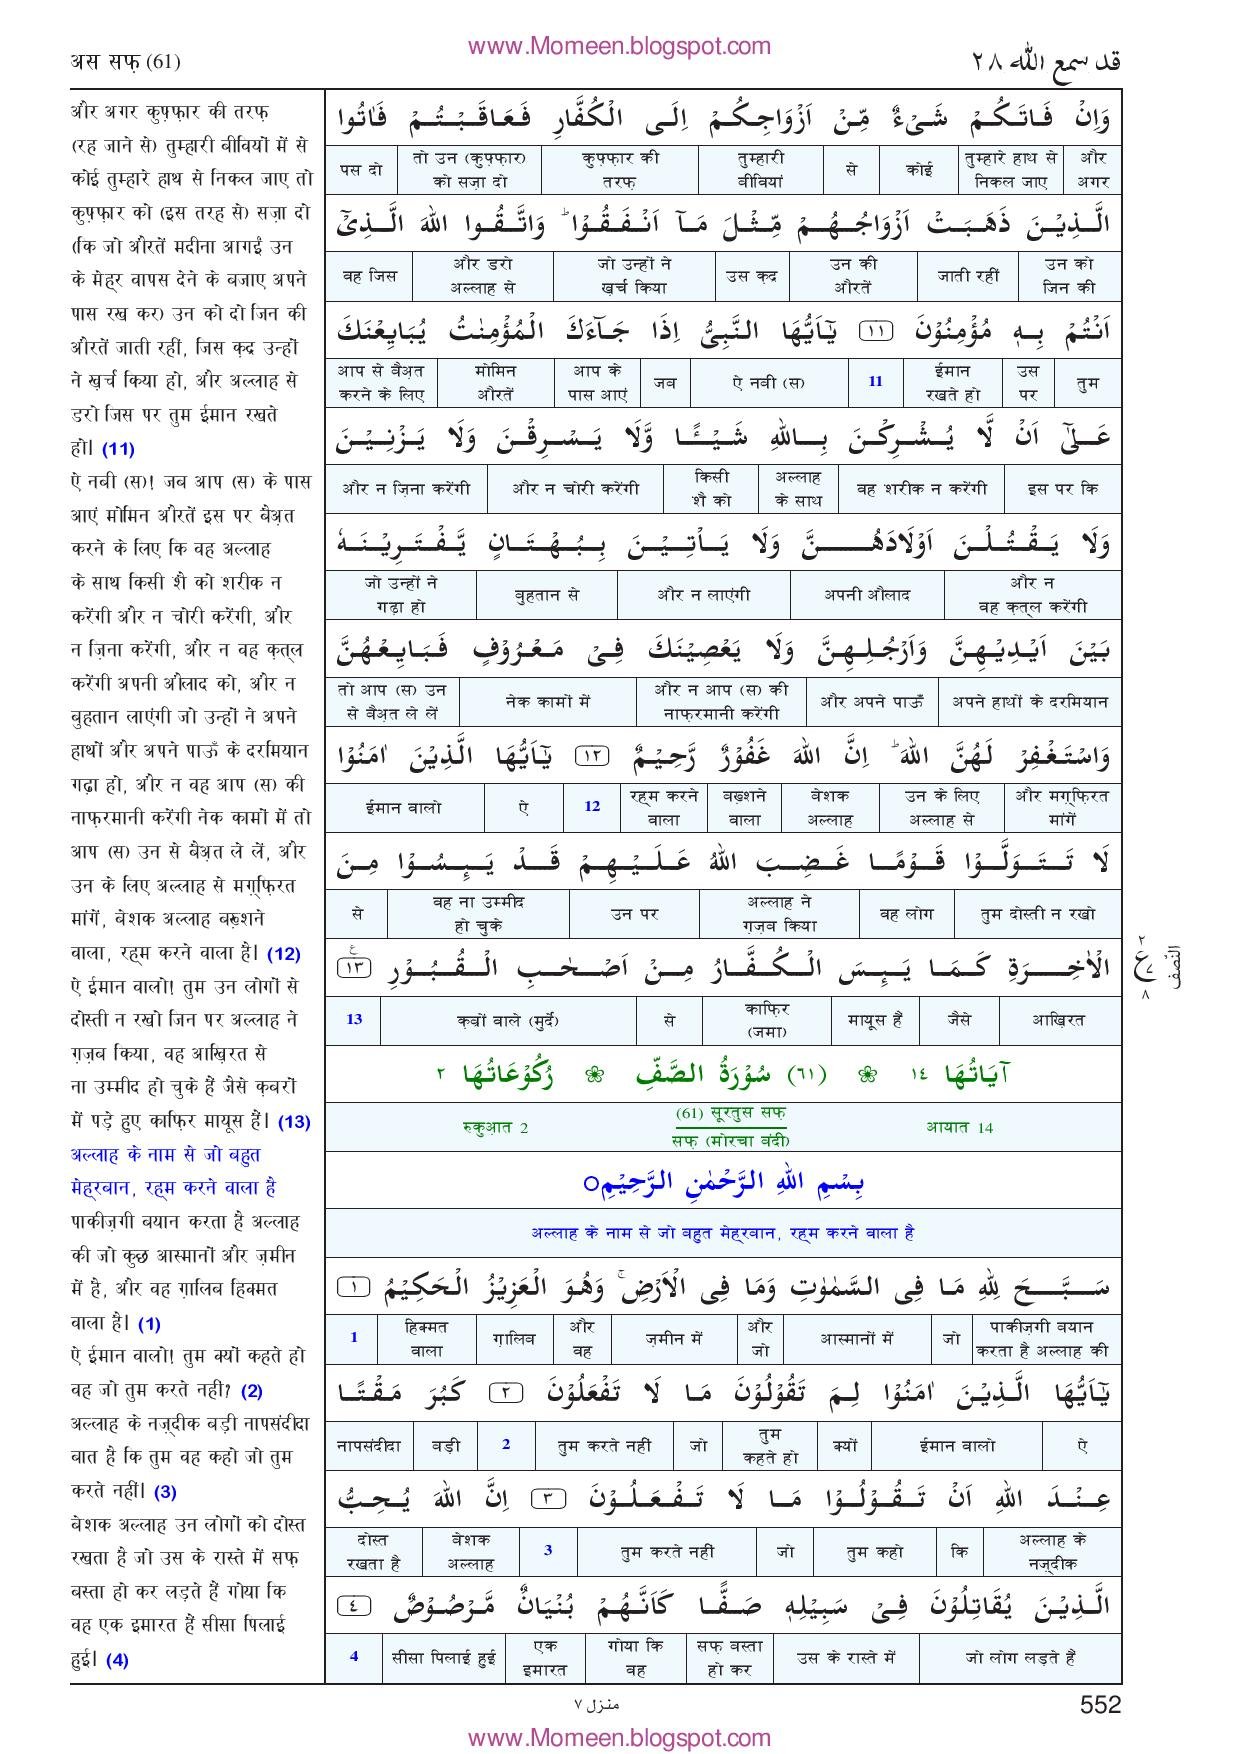 www.Momeen.blogspot.com
अस सफ़ (61)
قد سمع الله ٢٨
और अगर कुफ़्फ़ार की तरफ़
(रह जाने से) तुम्हारी बीवियों में से
कोई तुम्हारे हाथ से निकल जाए तो
कुफ़्फ़ार को (इस तरह से) सज़ा दो
(कि जो औरतें मदीना आगईं उन
के मेहर वापस देने के बजाए अपने
पास रख कर) उन को दो जिन की
औरतें जाती रहीं, जिस क़द्र उन्हों
ने ख़र्च किया हो, और अल्लाह से
डरो जिस पर तुम ईमान रखते
हो। (11)
ऐ नबी (स)! जब आप (स) के पास
आएं मोमिन औरतें इस पर बैअ़त
करने के लिए कि वह अल्लाह
के साथ किसी शै को शरीक न
करेंगी और न चोरी करेंगी, और
न ज़िना करेंगी, और न वह क़त्ल
करेंगी अपनी औलाद को, और न
बुहतान लाएंगी जो उन्हों ने अपने
हाथों और अपने पाऊँ के दरमियान
गढ़ा हो, और न वह आप (स) की
नाफ़रमानी करेंगी नेक कामों में तो
आप (स) उन से बैअ़त ले लें, और
उन के लिए अल्लाह से मग़्फ़िरत
मांगें, बेशक अल्लाह बख़्शने
वाला, रहम करने वाला है। (12)
ऐ ईमान वालो! तुम उन लोगों से
दोस्ती न रखो जिन पर अल्लाह ने
ग़ज़ब किया, वह आख़िरत से
ना उम्मीद हो चुके हैं जैसे क़बरों
में पड़े हुए काफ़िर मायूस हैं। (13)
अल्लाह के नाम से जो बहुत
मेह्रबान, रहम करने वाला है
पाकीज़गी बयान करता है अल्लाह
की जो कुछ आस्मानों और ज़मीन
में है, और वह ग़ालिब हिक्मत
वाला है। (1)
ऐ ईमान वालो! तुम क्यों कहते हो
वह जो तुम करते नहीं? (2)
अल्लाह के नज़्दीक बड़ी नापसंदीदा
बात है कि तुम वह कहो जो तुम
करते नहीं। (3)
बेशक अल्लाह उन लोगों को दोस्त
रखता है जो उस के रास्ते में सफ़
बस्ता हो कर लड़ते हैं गोया कि
वह एक इमारत हैं सीसा पिलाई
हुई। (4)
وَاِنْ فَاتَكُمْ شَىْءٌ مِّنْ اَزْوَاجِكُمْ اِلَى الْكُفَّارِ فَعَاقَبْتُمْ فَاٰتُوا
और अगर | तुम्हारे हाथ से निकल जाए | कोई | से | तुम्हारी बीवियां | कुफ़्फ़ार की तरफ़ | तो उन (कुफ़्फ़ार) को सज़ा दो | पस दो
الَّذِيْنَ ذَهَبَتْ اَزْوَاجُهُمْ مِّثْلَ مَآ اَنْفَقُوْا ؕ وَاتَّقُوا اللهَ الَّذِىْٓ
उन को जिन की | जाती रहीं | उन की औरतें | उस क़द्र | जो उन्हों ने ख़र्च किया | और डरो अल्लाह से | वह जिस
اَنْتُمْ بِهٖ مُؤْمِنُوْنَ ١١ يٰٓاَيُّهَا النَّبِىُّ اِذَا جَآءَكَ الْمُؤْمِنٰتُ يُبَايِعْنَكَ
तुम | उस पर | ईमान रखते हो | 11 | ऐ नबी (स) | जब | आप के पास आएं | मोमिन औरतें | आप से बैअ़त करने के लिए
عَلٰٓى اَنْ لَّا يُشْرِكْنَ بِاللهِ شَيْـًٔا وَّلَا يَسْرِقْنَ وَلَا يَزْنِيْنَ
इस पर कि | वह शरीक न करेंगी | अल्लाह के साथ | किसी शै को | और न चोरी करेंगी | और न ज़िना करेंगी
وَلَا يَقْتُلْنَ اَوْلَادَهُنَّ وَلَا يَاْتِيْنَ بِبُهْتَانٍ يَّفْتَرِيْنَهٗ
और न वह क़त्ल करेंगी | अपनी औलाद | और न लाएंगी | बुहतान से | जो उन्हों ने गढ़ा हो
بَيْنَ اَيْدِيْهِنَّ وَاَرْجُلِهِنَّ وَلَا يَعْصِيْنَكَ فِىْ مَعْرُوْفٍ فَبَايِعْهُنَّ
अपने हाथों के दरमियान | और अपने पाऊँ | और न आप (स) की नाफ़रमानी करेंगी | नेक कामों में | तो आप (स) उन से बैअ़त ले लें
وَاسْتَغْفِرْ لَهُنَّ اللهَ ؕ اِنَّ اللهَ غَفُوْرٌ رَّحِيْمٌ ١٢ يٰٓاَيُّهَا الَّذِيْنَ اٰمَنُوْا
और मग़्फ़िरत मांगें | उन के लिए अल्लाह से | बेशक अल्लाह | बख़्शने वाला | रहम करने वाला | 12 | ऐ | ईमान वालो
لَا تَتَوَلَّوْا قَوْمًا غَضِبَ اللهُ عَلَيْهِمْ قَدْ يَىِٕسُوْا مِنَ
तुम दोस्ती न रखो | वह लोग | अल्लाह ने ग़ज़ब किया | उन पर | वह ना उम्मीद हो चुके | से
الْاٰخِرَةِ كَمَا يَىِٕسَ الْكُفَّارُ مِنْ اَصْحٰبِ الْقُبُوْرِ ١٣ ع
आख़िरत | जैसे | मायूस हैं | काफ़िर (जमा) | से | क़ब्रों वाले (मुर्दे) | 13
٢ ع ٧ ٨ النصف
آيَاتُهَا ١٤ ❀ (٦١) سُوْرَةُ الصَّفِّ ❀ رُكُوْعَاتُهَا ٢
आयात 14 | (61) सूरतुस सफ़ सफ़ (मोरचा बंदी) | रुकुआ़त 2
بِسْمِ اللهِ الرَّحْمٰنِ الرَّحِيْمِ ○
अल्लाह के नाम से जो बहुत मेह्रबान, रहम करने वाला है
سَبَّحَ لِلّٰهِ مَا فِى السَّمٰوٰتِ وَمَا فِى الْاَرْضِ ۚ وَهُوَ الْعَزِيْزُ الْحَكِيْمُ ١
पाकीज़गी बयान करता है अल्लाह की | जो | आस्मानों में | और जो | ज़मीन में | और वह | ग़ालिब | हिक्मत वाला | 1
يٰٓاَيُّهَا الَّذِيْنَ اٰمَنُوْا لِمَ تَقُوْلُوْنَ مَا لَا تَفْعَلُوْنَ ٢ كَبُرَ مَقْتًا
ऐ | ईमान वालो | क्यों | तुम कहते हो | जो | तुम करते नहीं | 2 | बड़ी | नापसंदीदा
عِنْدَ اللهِ اَنْ تَقُوْلُوْا مَا لَا تَفْعَلُوْنَ ٣ اِنَّ اللهَ يُحِبُّ
अल्लाह के नज़्दीक | कि | तुम कहो | जो | तुम करते नहीं | 3 | बेशक अल्लाह | दोस्त रखता है
الَّذِيْنَ يُقَاتِلُوْنَ فِىْ سَبِيْلِهٖ صَفًّا كَاَنَّهُمْ بُنْيَانٌ مَّرْصُوْصٌ ٤
जो लोग लड़ते हैं | उस के रास्ते में | सफ़ बस्ता हो कर | गोया कि वह | एक इमारत | सीसा पिलाई हुई | 4
منزل ٧
552
www.Momeen.blogspot.com